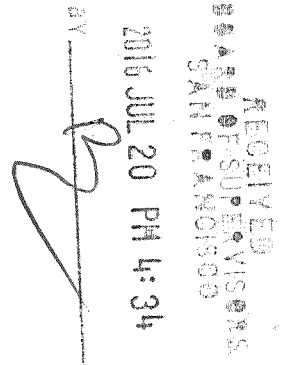 RECEIVED
BOARD OF SUPERVISORS
SAN FRANCISCO
2016 JUL 20 PM 4:34
BY